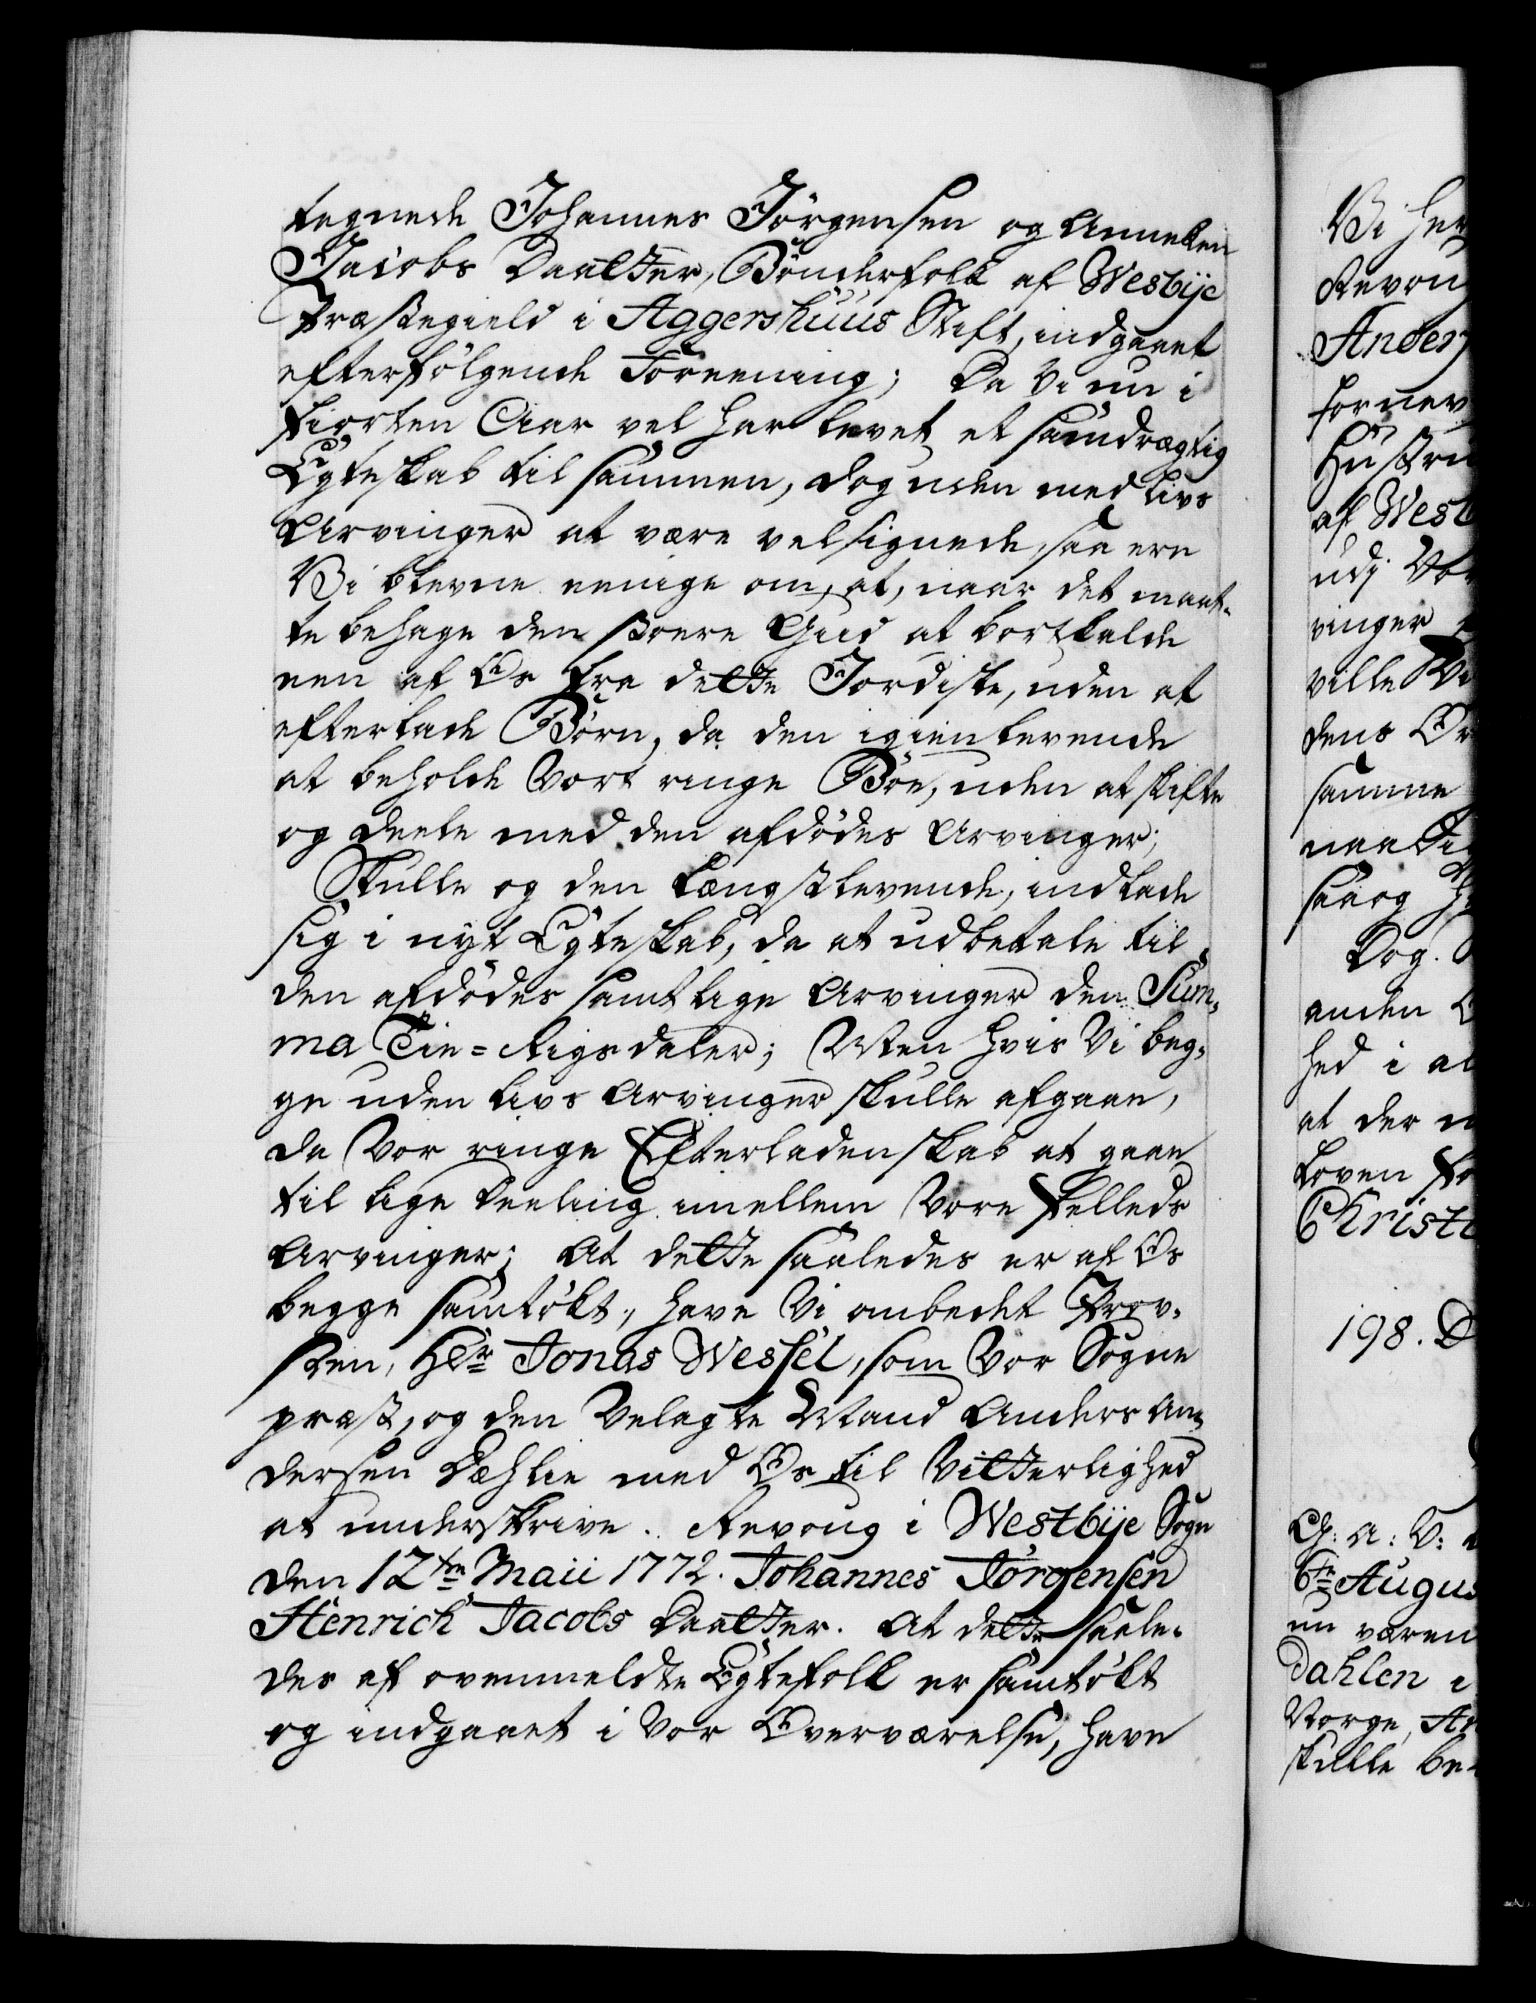 tegnede Johannes Jörgensen og Anneken
Jacobs Daatter, Bönderfolk af Wesbije
Præstegield i Aggershuus Stift, indgaaet
efterfölgende Foreening; Da Vi nu i
fiorten Aar vel har levet et samdrægtig
Ægteskab til sammen, dog uden med Livs
Arvinger at være velsignede, saa ere
Vi blevne eenige om, at, naar det maat-
te behage den store Gud at bortkalde
een af Os fra dette Jordiske, uden at
efterlade Börn, da den igienlevende
at beholde Vort ringe Boe, uden at skifte
og deele med den afdödes Arvinger;
Skulle og den Længstlevende, indlade
sig i nyt Ægteskab, da at udbetale til
den afdödes samtlige Arvinger den Sum-
ma Tie=Rigsdaler; Men hvis Vi beg-
ge uden Livs Arvinger skulle afgaae,
da Vor ringe Efterladenskab at gaae
til lige Deeling imellem Vore Felleds
Arvinger; At dette saaledes er af Os
begge samtökt, have Vi ombedet Prov-
sten, Hr Jonas Wessel, som Vor Sogne
præst, og den Velagte Mand Anders An-
dersen Dæhlie med Os til Vitterlighed
at underskrive. Revoug i Westbije Sogn
den 12te Maii 1772. Johannes Jörgensen
Henrich Jacobs Daatter. At dette saale-
des af ovenmeldte Ægtefolk er samtökt
og indgaaet i Vor Overværelse, have
Vi her
Revou
Anders
fornev
Hustru
af West
udj Vo
vinger
ville Vi
dens
samme
naadi
saa og
Dog
anden
hed i al
at der
Loven
Christi
198. D
G: A: V:
6te Augus
nu væren
Dahlen i
Norge, An
skulle be